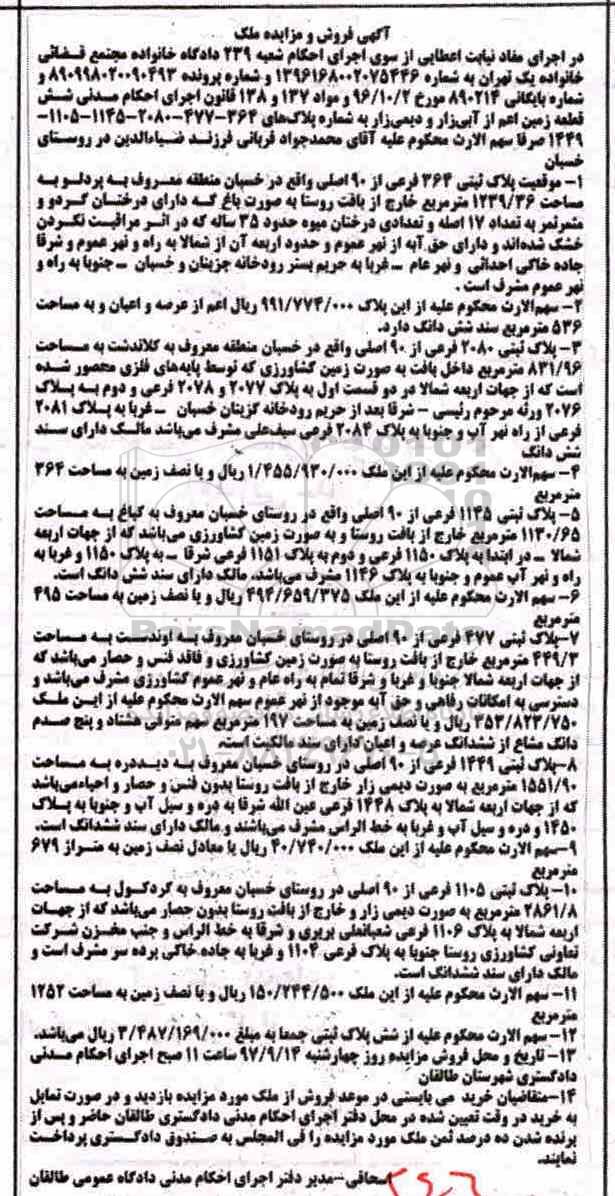 آگهی فروش و مزایده ملک
در اجرای مفاد نیابت اعطایی از سوی اجرای احکام شعبه ۲۳۹ دادگاه خانواده مجتمع قضائی
خانواده یک تهران به شماره ۱۳۹۶۱۶۸۰۰۲۰۷۵۴۴۶ و شماره پرونده ۸۹۰۹۹۸۰۲۰۰۹۰۴۹۳ و
شماره بایگانی ۸۹۰۲۱۴ مورخ ۹۶/۱۰/۲ و مواد ۱۳۷ و ۱۳۸ قانون اجرای احکام مدنی شش
قطعه زمین اعم از آبی‌زار و دیمی‌زار به شماره پلاک‌های ۳۶۴-۴۷۷-۲۰۸۰-۱۱۴۵-۱۱۰۵-
۱۴۴۹ صرفا سهم الارث محکوم علیه آقای محمدجواد قربانی فرزند ضیاءالدین در روستای
خسبان
۱- موقعیت پلاک ثبتی ۳۶۴ فرعی از ۹۰ اصلی واقع در خسبان منطقه معروف به پردلو به
مساحت ۱۲۳۹/۳۶ مترمربع خارج از بافت روستا به صورت باغ که دارای درختان گردو و
مثمرثمر به تعداد ۱۷ اصله و تعدادی درختان میوه حدود ۳۵ ساله که در اثر مراقبت نکردن
خشک شده‌اند و دارای حق آبه از نهر عموم و حدود اربعه آن از شمالا به راه و نهر عموم و شرقا
جاده خاکی احداثی و نهر عام – غربا به حریم بستر رودخانه جزینان و خسبان – جنوبا به راه و
نهر عموم مشرف است .
۲- سهم‌الارث محکوم علیه از این پلاک ۹۹۱/۷۷۴/۰۰۰ ریال اعم از عرصه و اعیان و به مساحت
۵۳۶ مترمربع سند شش دانگ دارد.
۳- پلاک ثبتی ۲۰۸۰ فرعی از ۹۰ اصلی واقع در خسبان منطقه معروف به کلاندشت به مساحت
۸۳۱/۹۶ مترمربع داخل بافت به صورت زمین کشاورزی که توسط پایه‌های فلزی محصور شده
است که از جهات اربعه شمالا در دو قسمت اول به پلاک ۲۰۷۷ و ۲۰۷۸ فرعی و دوم به پلاک
۲۰۷۶ ورثه مرحوم رئیسی – شرقا بعد از حریم رودخانه گزینان خسبان – غربا به پلاک ۲۰۸۱
فرعی از راه نهر آب و جنوبا به پلاک ۲۰۸۴ فرعی سیف‌علی مشرف می‌باشد مالک دارای سند
شش دانگ
۴- سهم‌الارث محکوم علیه از این ملک ۱/۴۵۵/۹۳۰/۰۰۰ ریال و یا نصف زمین به مساحت ۳۶۴
مترمربع
۵- پلاک ثبتی ۱۱۴۵ فرعی از ۹۰ اصلی واقع در روستای خسبان معروف به کباغ به مساحت
۱۱۳۰/۶۵ مترمربع خارج از بافت روستا و به صورت زمین کشاورزی می‌باشد که از جهات اربعه
شمالا – در ابتدا به پلاک ۱۱۵۰ فرعی و دوم به پلاک ۱۱۵۱ فرعی شرقا – به پلاک ۱۱۵۰ و غربا به
راه و نهر آب عموم و جنوبا به پلاک ۱۱۴۶ مشرف می‌باشد. مالک دارای سند شش دانگ است.
۶- سهم الارث محکوم علیه از این ملک ۴۹۴/۶۵۹/۳۷۵ ریال و یا نصف زمین به مساحت ۴۹۵
مترمربع
۷-پلاک ثبتی ۴۷۷ فرعی از ۹۰ اصلی در روستای خسبان معروف به اوندشت به مساحت
۴۴۹/۳ مترمربع خارج از بافت روستا به صورت زمین کشاورزی و فاقد فنس و حصار می‌باشد که
از جهات اربعه شمالا جنوبا و غربا و شرقا تمام به راه عام و نهر عموم کشاورزی مشرف می‌باشد و
دسترسی به امکانات رفاهی و حق آبه موجود از نهر عموم سهم الارث محکوم علیه از این ملک
۳۵۳/۸۲۳/۷۵۰ ریال و یا نصف زمین به مساحت ۱۹۷ مترمربع سهم متوفی هشتاد و پنج صدم
دانگ مشاع از ششدانگ عرصه و اعیان دارای سند مالکیت است.
۸-پلاک ثبتی ۱۴۴۹ فرعی از ۹۰ اصلی در روستای خسبان معروف به دیددره به مساحت
۱۵۵۱/۹۰ مترمربع به صورت دیمی زار خارج از بافت روستا بدون فنس و حصار و احیاءمی‌باشد
که از جهات اربعه شمالا به پلاک ۱۴۴۸ فرعی عین الله شرقا به دره و سیل آب و جنوبا به پلاک
۱۴۵۰ و دره و سیل آب و غربا به خط الراس مشرف می‌باشند و مالک دارای سند ششدانگ است.
۹-سهم الارث محکوم علیه از این ملک ۴۰/۷۴۰/۰۰۰ ریال یا معادل نصف زمین به متراژ ۶۷۹
مترمربع
۱۰- پلاک ثبتی ۱۱۰۵ فرعی از ۹۰ اصلی در روستای خسبان معروف به گردکول به مساحت
۲۸۶۱/۸ مترمربع به صورت دیمی زار و خارج از بافت روستا بدون حصار می‌باشد که از جهات
اربعه شمالا به پلاک ۱۱۰۶ فرعی شعبانعلی بربری و شرقا به خط الراس و جنب مخزن شرکت
تعاونی کشاورزی روستا جنوبا به پلاک فرعی ۱۱۰۴ و غربا به جاده خاکی پرده سر مشرف است و
مالک دارای سند ششدانگ است.
۱۱- سهم الارث محکوم علیه از این ملک ۱۵۰/۲۴۴/۵۰۰ ریال و یا نصف زمین به مساحت ۱۲۵۲
مترمربع
۱۲- سهم الارث محکوم علیه از شش پلاک ثبتی جمعا به مبلغ ۳/۴۸۷/۱۶۹/۰۰۰ ریال می‌باشد.
۱۳- تاریخ و محل فروش مزایده روز چهارشنبه ۹۷/۹/۱۴ ساعت ۱۱ صبح اجرای احکام مدنی
دادگستری شهرستان طالقان
۱۴-متقاضیان خرید می بایستی در موعد فروش از ملک مورد مزایده بازدید و در صورت تمایل
به خرید در وقت تعیین شده در محل دفتر اجرای احکام مدنی دادگستری طالقان حاضر و پس از
برنده شدن ده درصد ثمن ملک مورد مزایده را فی المجلس به صندوق دادگستری پرداخت
نمایند.
اسحاقی-مدیر دفتر اجرای احکام مدنی دادگاه عمومی طالقان
ParsNamadData